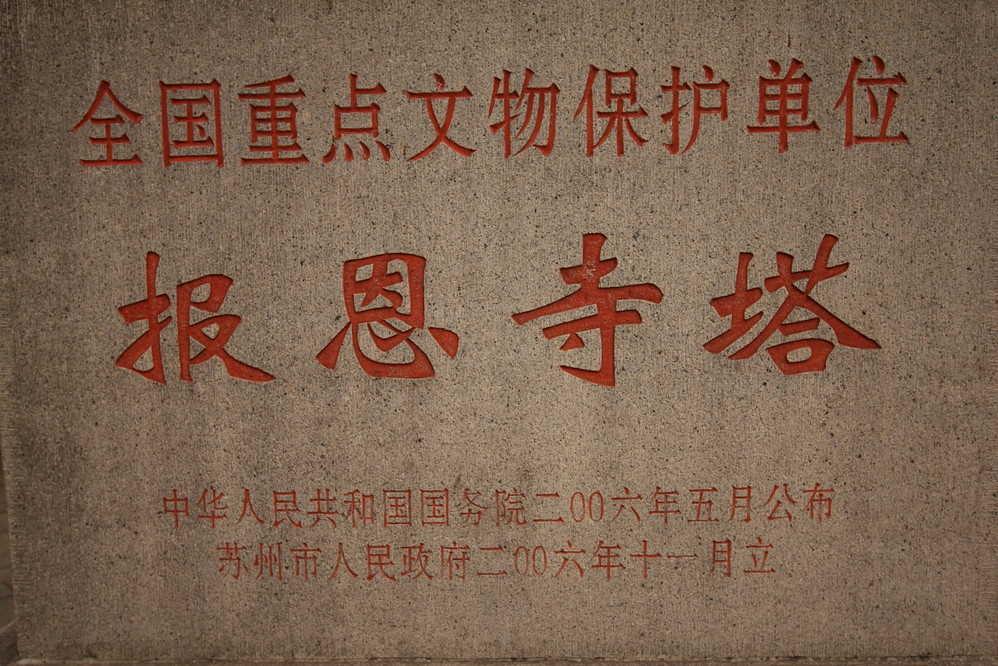 全国重点文物保护单位
报恩寺塔
中华人民共和国国务院二00六年五月公布
苏州市人民政府二00六年十一月立